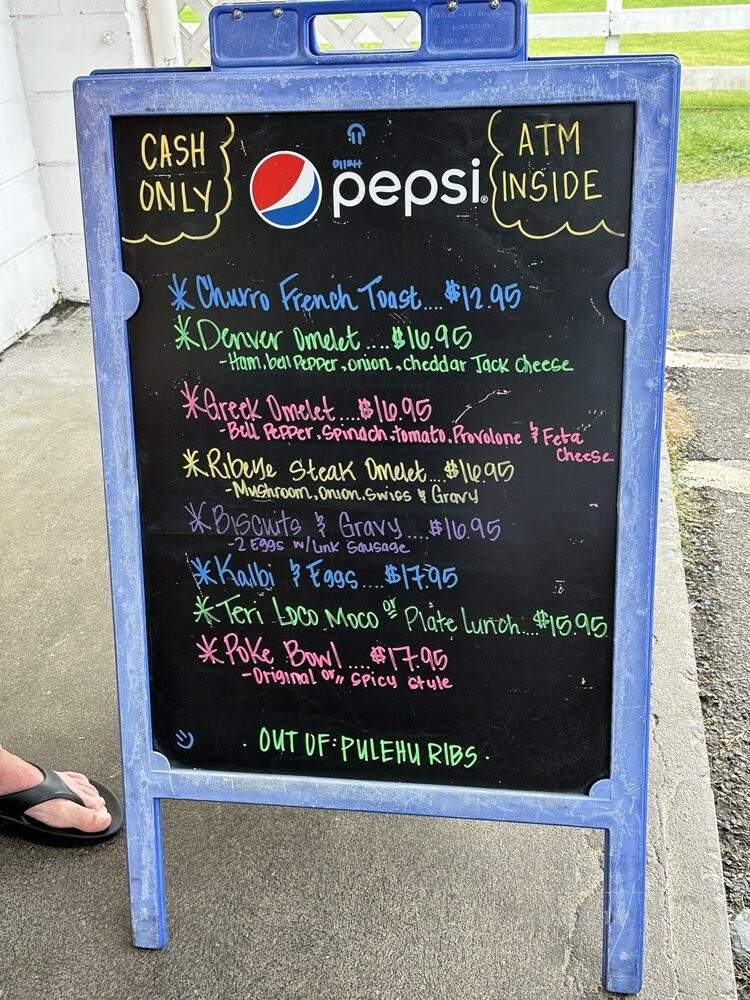 CASH
ONLY
pepsi®
ATM
INSIDE
* Churro French Toast....$12.95
* Denver Omelet....$16.95
-Ham, bell Pepper, onion, cheddar Jack Cheese
* Greek Omelet...$16.95
-Bell Pepper, Spinach, tomato, Provolone & Feta
Cheese
* Ribeye Steak Omelet...$16.95
-Mushroom, onion, Swiss & Gravy
* Biscuits & Gravy....$16.95
-2 Eggs w/Link Sausage
* Kalbi & Eggs....$17.95
* Teri Loco Moco or Plate Lunch....$15.95
* Poke Bowl....$17.95
-Original or,, Spicy style
. OUT OF: PULEHU RIBS .